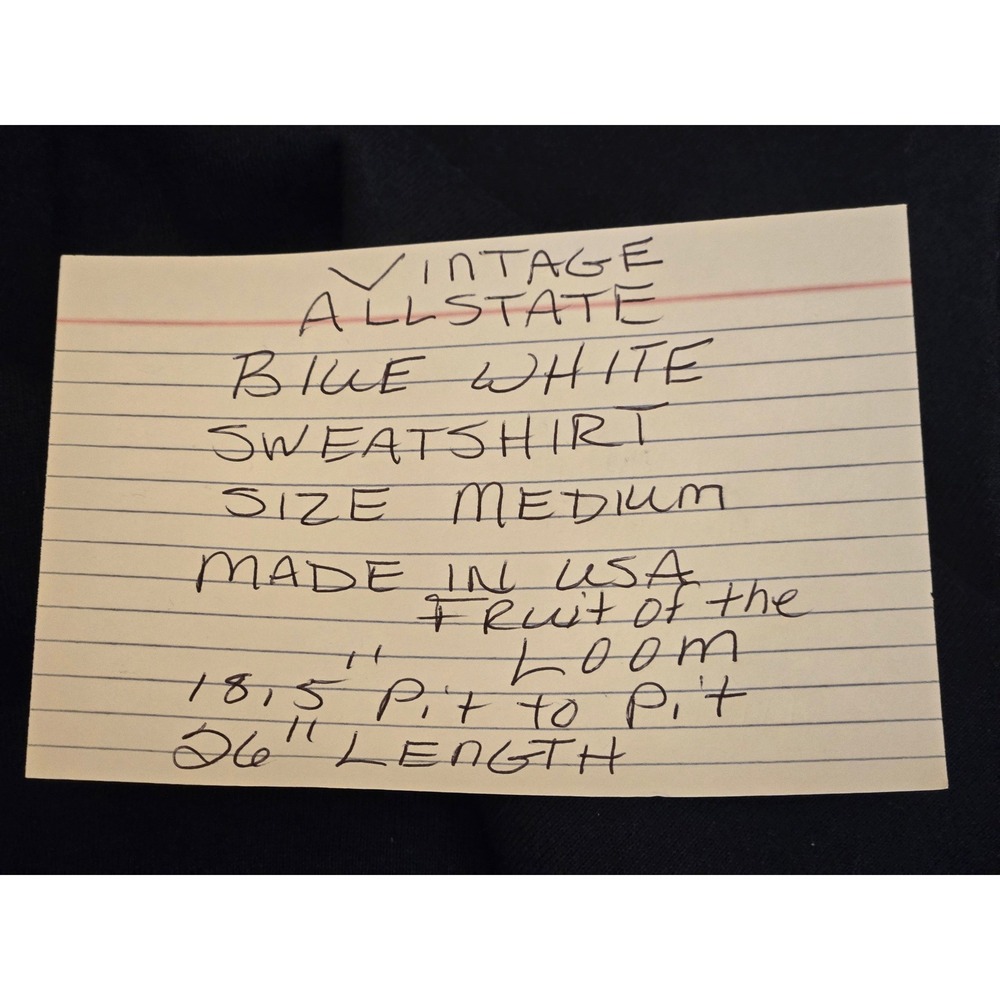 VINTAGE
ALLSTATE
BLUE WHITE
SWEATSHIRT
SIZE MEDIUM
MADE IN USA
FRuit of the
LOOM
18.5" Pit to Pit
26" LENGTH